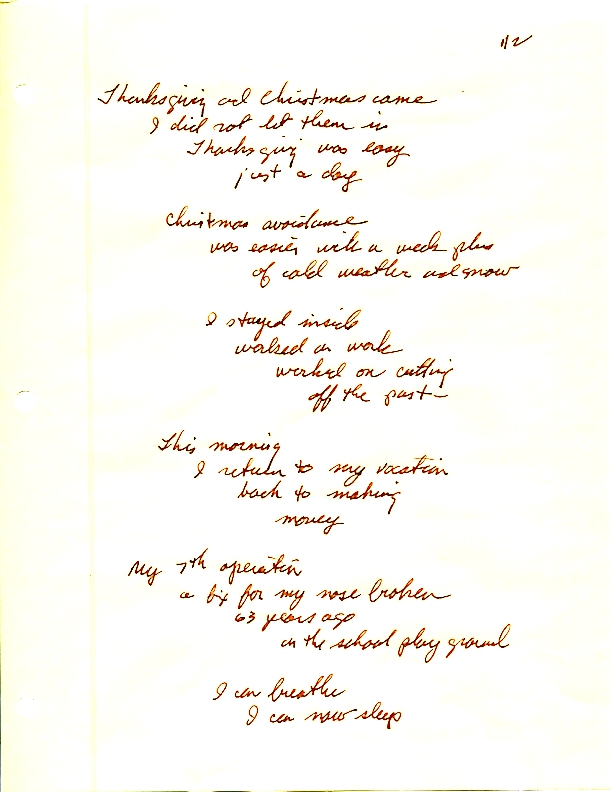 1/2
Thanksgiving and Christmas came
I did not let them in
Thanksgiving was easy
just a day
Christmas avoidance
was easier with a week plus
of cold weather and snow
I stayed inside
worked on work
worked on cutting
off the past—
This morning
I return to my vocation
back to making
money
My 7th operation
a fix for my nose broken
63 years ago
on the school play ground
I can breathe
I can now sleep